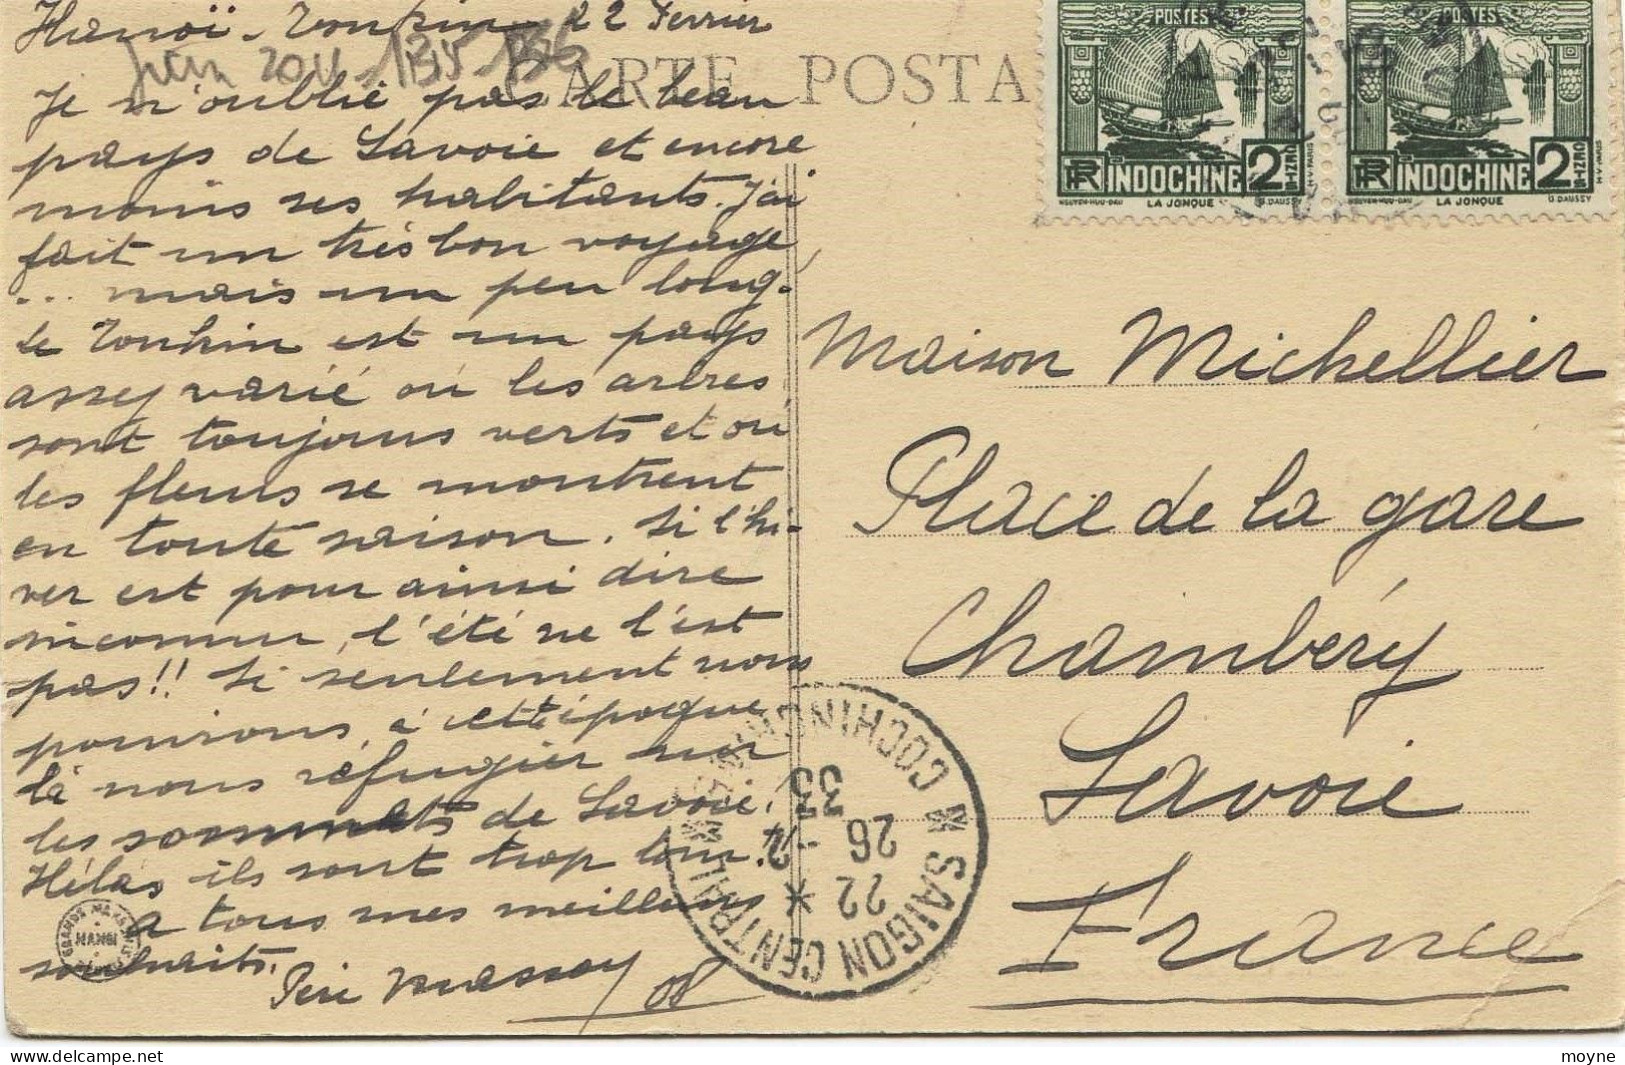 Hanoï - Tonkin 22 Février
Juin 2011 1335 136
CARTE POSTA
Je n'oublie pas le beau
pays de Savoie et encore
moins ses habitants. J'ai
fait un très bon voyage
... mais un peu long.
Le Tonkin est un pays
assez varié où les arbres
sont toujours verts et où
les fleurs se montrent
en toute saison. Si l'hi-
ver est pour ainsi dire
inconnu, l'été ne l'est
pas!! Si seulement nous
pouvions à cette époque
là nous réfugier sur
les sommets de Savoie!
Hélas ils sont trop loin!
A tous mes meilleurs
souhaits.
Père Massoy
GRANDS MAGASINS
HANOI
POSTES
RF INDOCHINE 2
CENTS
NGUYEN-HUU-DAU LA JONQUE G.DAUSSY
H.V-PARIS
POSTES
RF INDOCHINE 2
CENTS
NGUYEN-HUU-DAU LA JONQUE G.DAUSSY
H.V-PARIS
Maison Michellier
Place de la gare
Chambéry
Savoie
France
* SAIGON CENTRAL * COCHINCHINE
22 *
26 - 2
33
moyne